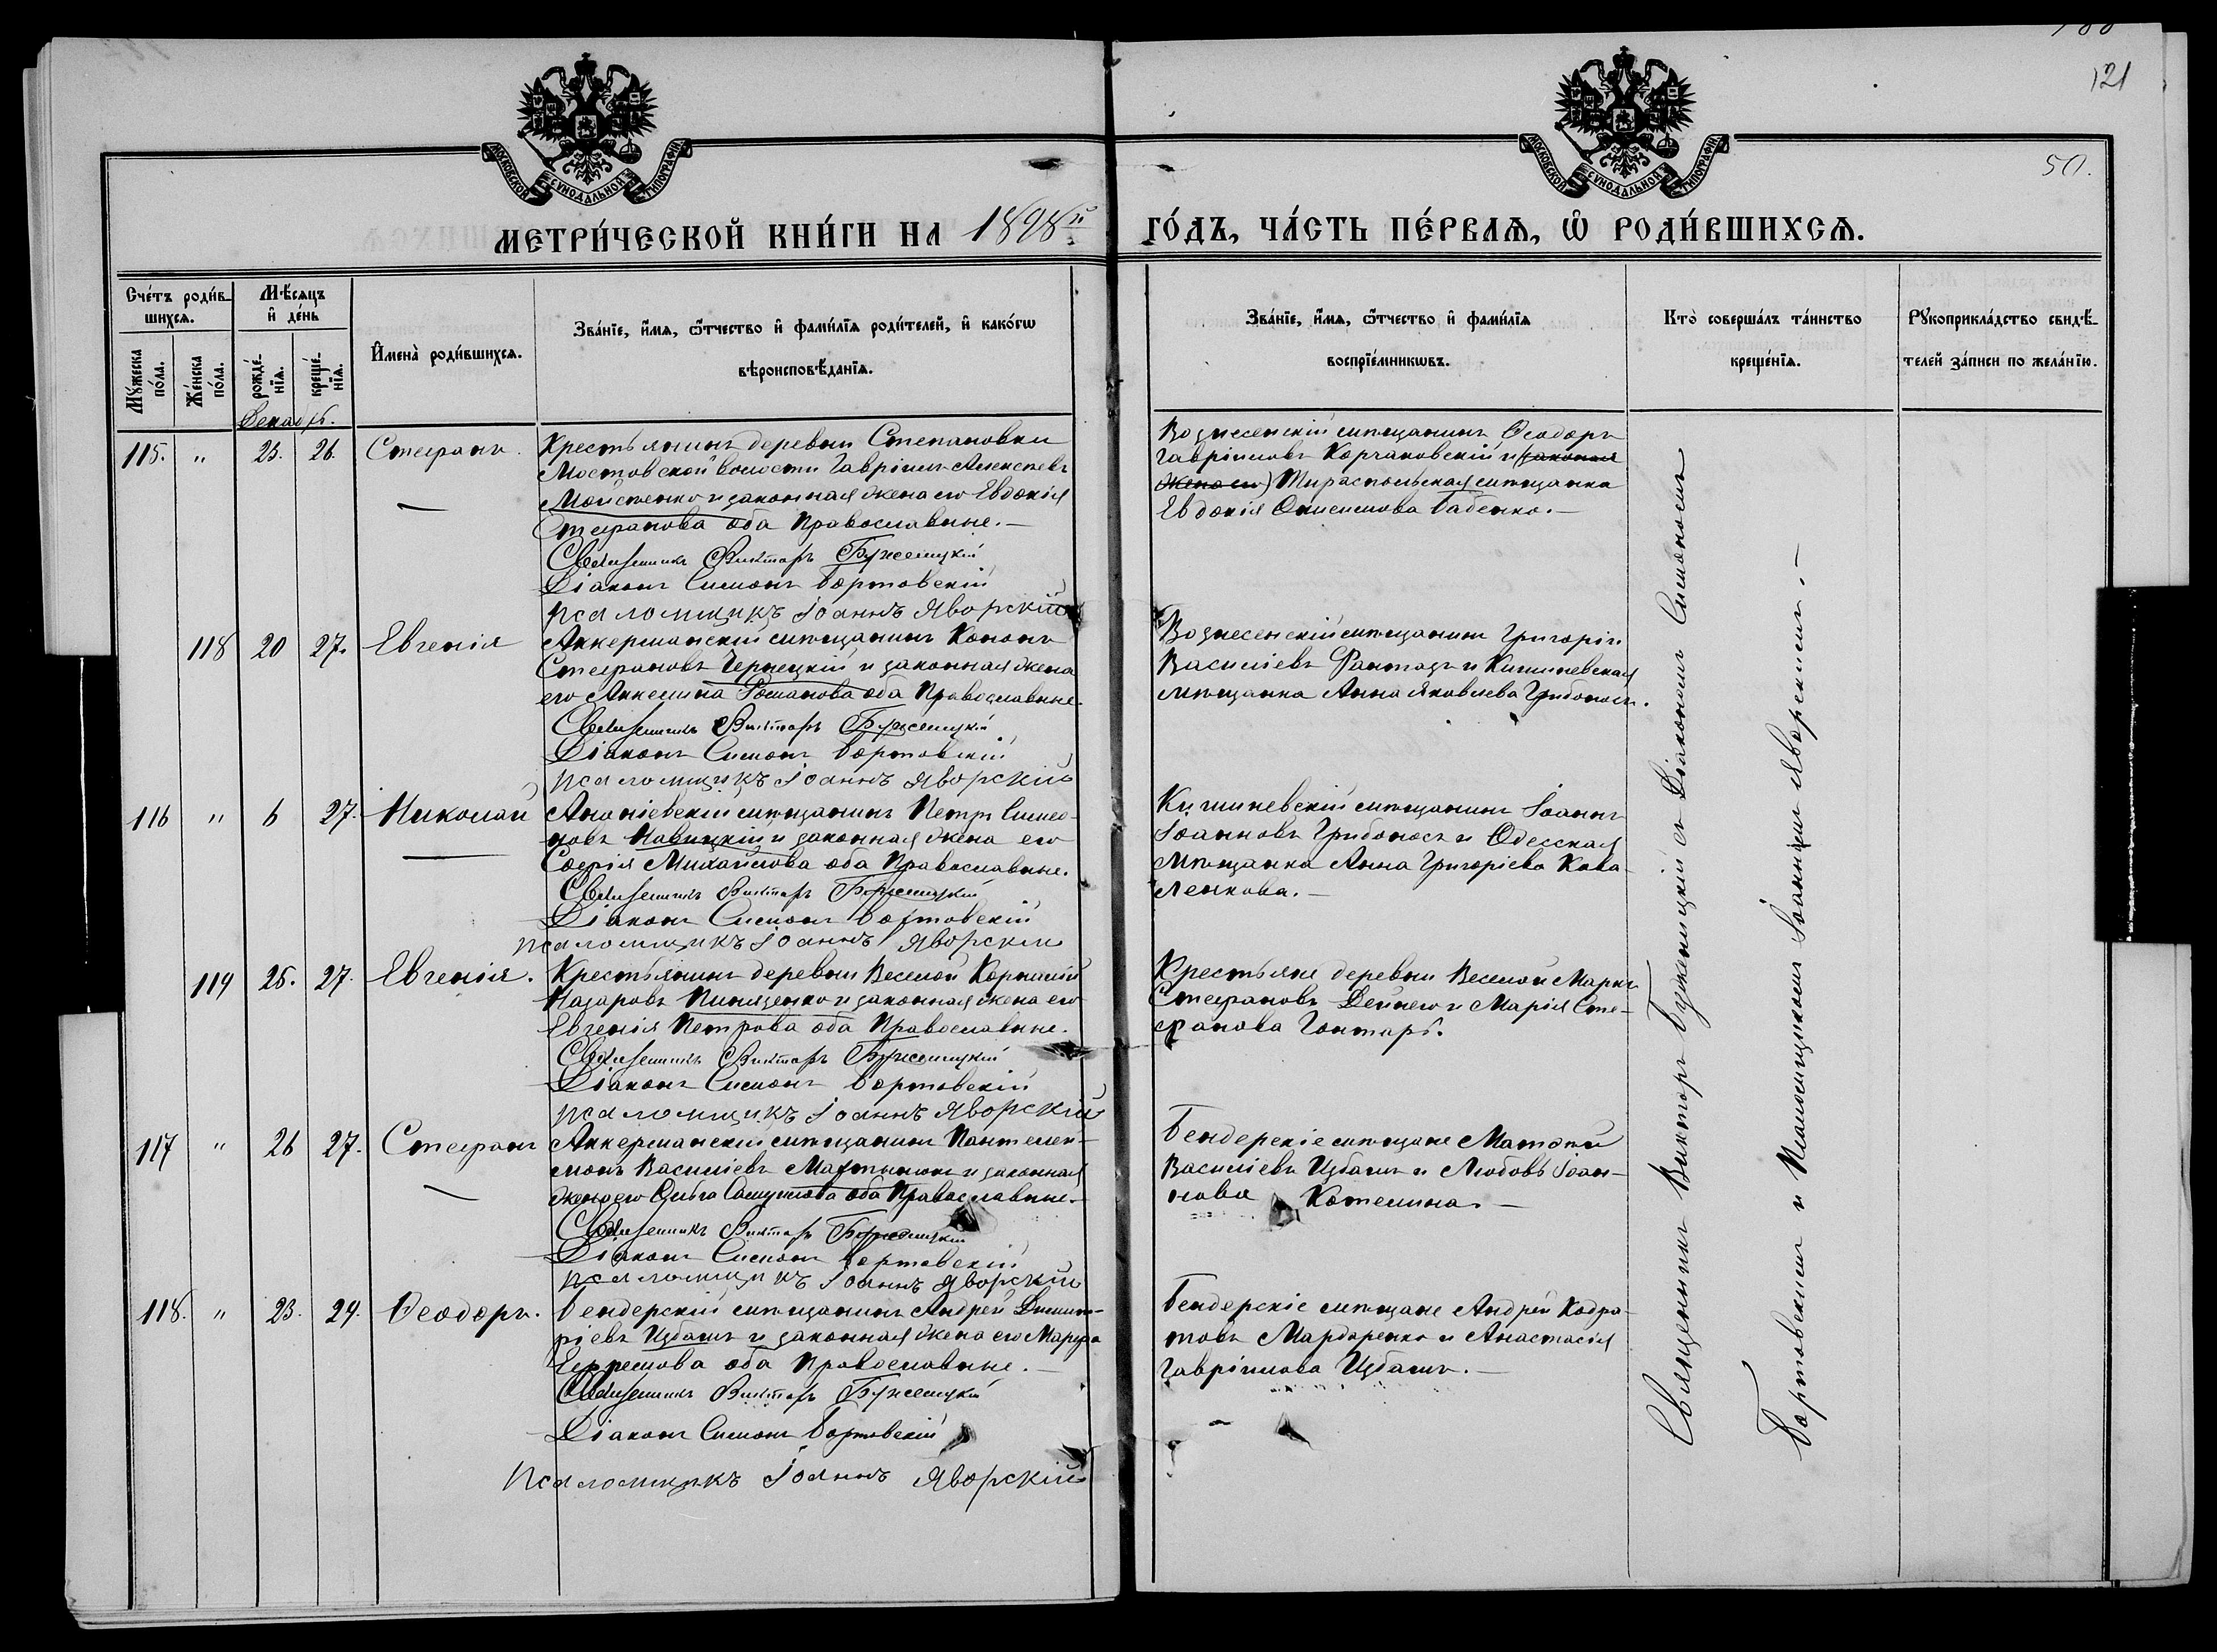 121
50.
МОСКОВСКОЙ СУНОДАЛЬНОЙ ТИПОГРАФІИ
МОСКОВСКОЙ СУНОДАЛЬНОЙ ТИПОГРАФІИ
МЕТРИ́ЧЕСКОЙ КНИ́ГИ НА 1898й
ГО́ДЪ, ЧА́СТЬ ПЕ́РВАѦ, Ѽ РОДИ́ВШИХСѦ.
Сче́тъ роди́в-
шихсѧ.
Мꙋ́жеска по́ла.
Же́нска по́ла.
Мѣ́сѧцъ и҆ де́нь
рожде́-нїѧ.
креще́-нїѧ.
И҆мена̀ роди́вшихсѧ.
Зва́нїе, и҆́мѧ, ѻ҆́тчество и҆ фами́лїѧ роди́телей, и҆ како́гѡ
вѣроисповѣ́данїѧ.
Зва́нїе, и҆́мѧ, ѻ҆́тчество и҆ фами́лїѧ
воспрїе́мникѡвъ.
Кто̀ соверша́лъ та́инство
креще́нїѧ.
Рꙋкоприкла́дство свидѣ́-
телей за́писи по жела́нїю.
Декабрь.
115. " 23. 26. Стефанъ. Крестьянинъ деревни Степановки
Мостовской волости Гавріилъ Алексѣевъ
Мойсеенко и законная жена его Евдокія
Стефанова оба Православные.—
Священникъ Викторъ Буженицкій
Діаконъ Симонъ Бортовскій
Псаломщикъ Іоаннъ Яворскій
Вознесенскій мѣщанинъ Ѳеодоръ
Гавріиловъ Корчаковскій и (законная
жена его) Тираспольская мѣщанка
Евдокія Онисимова Бабенко.—
118 20 27. Евгенія Аккерманскій мѣщанинъ Кононъ
Стефановъ Чернецкій и законная жена
его Акилина Романова оба Православные.
Священникъ Викторъ Буженицкій
Діаконъ Симонъ Бортовскій
Псаломщикъ Іоаннъ Яворскій
Вознесенскій мѣщанинъ Григорій
Василіевъ Фантазъ и Кишиневская
мѣщанка Анна Яковлева Грибоносъ.
116 " 6 27. Николай Ананіевскій мѣщанинъ Петръ Симео-
новъ Навицкій и законная жена его
Софія Михайлова оба Православные.
Священникъ Викторъ Буженицкій
Діаконъ Симонъ Бортовскій
Псаломщикъ Іоаннъ Яворскій
Кишиневскій мѣщанинъ Іоаннъ
Іоанновъ Грибоносъ и Одесская
мѣщанка Анна Григоріева Кова-
ленкова.—
119 25. 27. Евгенія. Крестьянинъ деревни Веселой Корнилій
Назаровъ Пинязенко и законная жена его
Евгенія Петрова оба Православные.
Священникъ Викторъ Буженицкій
Діаконъ Симонъ Бортовскій
Псаломщикъ Іоаннъ Яворскій
Крестьяне деревни Веселой Маркъ
Стефановъ Дейнего и Марія Сте-
фанова Гонтарь.
117 " 26 27. Стефанъ Аккерманскій мѣщанинъ Пантелей-
монъ Василіевъ Мартынюкъ и законная
жена его Ольга Самуилова оба Православные.
Священникъ Викторъ Буженицкій
Діаконъ Симонъ Бортовскій
Псаломщикъ Іоаннъ Яворскій
Бендерскіе мѣщане Матѳей
Василіевъ Цыбашъ и Любовь Іоан-
нова Котелина.—
118. " 23. 29. Ѳеодоръ. Бендерскій мѣщанинъ Андрей Димит-
ріевъ Цыбашъ и законная жена его Марѳа
Ефремова оба Православные.—
Священникъ Викторъ Буженицкій
Діаконъ Симонъ Бортовскій
Псаломщикъ Іоаннъ Яворскій
Бендерскіе мѣщане Андрей Кодра-
товъ Мардаренко и Анастасія
Гавріилова Цыбашъ.—
Священникъ Викторъ Буженицкій съ Діакономъ Симономъ
Бортовскимъ и Псаломщикомъ Іоанномъ Яворскимъ.—